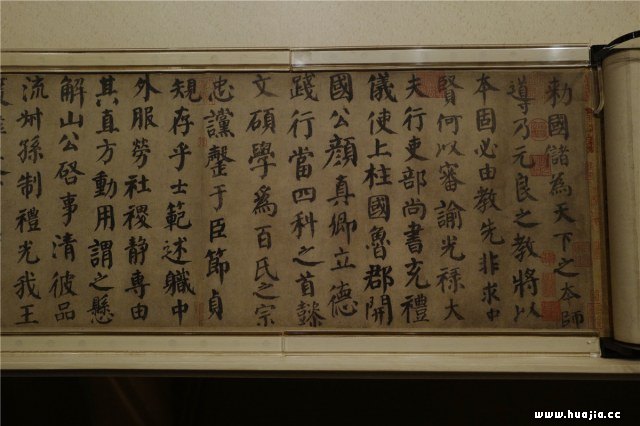 勅國儲為天下之本師
導乃元良之教將以
本固必由教先非求忠
賢何以審諭光祿大
夫行吏部尚書充禮
儀使上柱國魯郡開
國公顏真卿立德
踐行當四科之首懿
文碩學為百氏之宗
忠讜罄于臣節貞
規存乎士範述職中
外服勞社稷静專由
其直方動用謂之懸
解山公啓事清彼品
流叔孫制禮光我王
www.huajia.cc